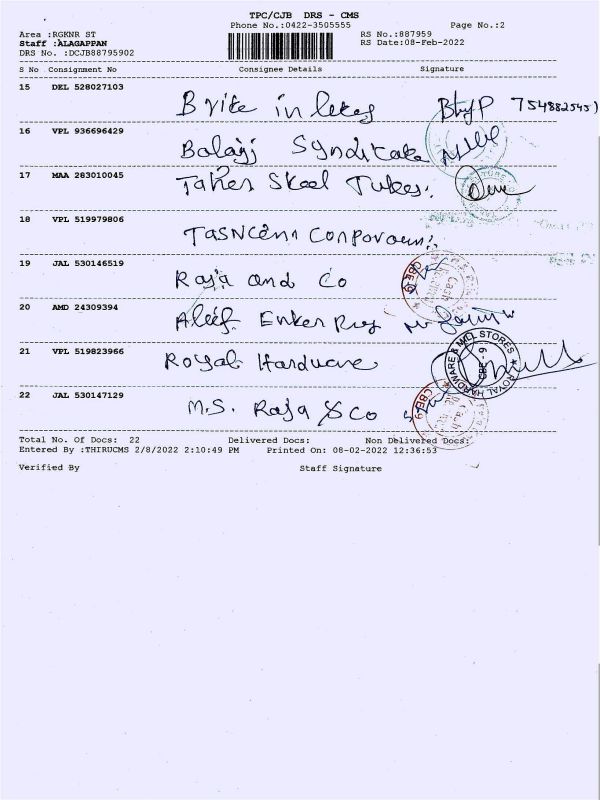 TPC/CJB DRS - CMS
Phone No.:0422-3505555 Page No.:2
Area :RGKNR ST RS No.:887959
Staff :ALAGAPPAN RS Date:08-Feb-2022
DRS No. :DCJB88795902
S No Consignment No Consignee Details Signature
15 DEL 528027103
Brite in lekes
16 VPL 936696429
Balagji Syndicate
17 MAA 283010045
Taher Steel Tubes.
18 VPL 519979806
19 JAL 530146519
Raja and Co
CBE 9 Cash
20 AMD 24309394
Aleef
21 VPL 519823966
Royal Hardware
ROYAL HARDWARE & MILL STORES CBE - 9
22 JAL 530147129
M.S. Raja & Co
CBE 9 Cash
Total No. Of Docs: 22 Delivered Docs: Non Delivered Docs:
Entered By :THIRUCMS 2/8/2022 2:10:49 PM Printed On: 08-02-2022 12:36:53
Verified By Staff Signature